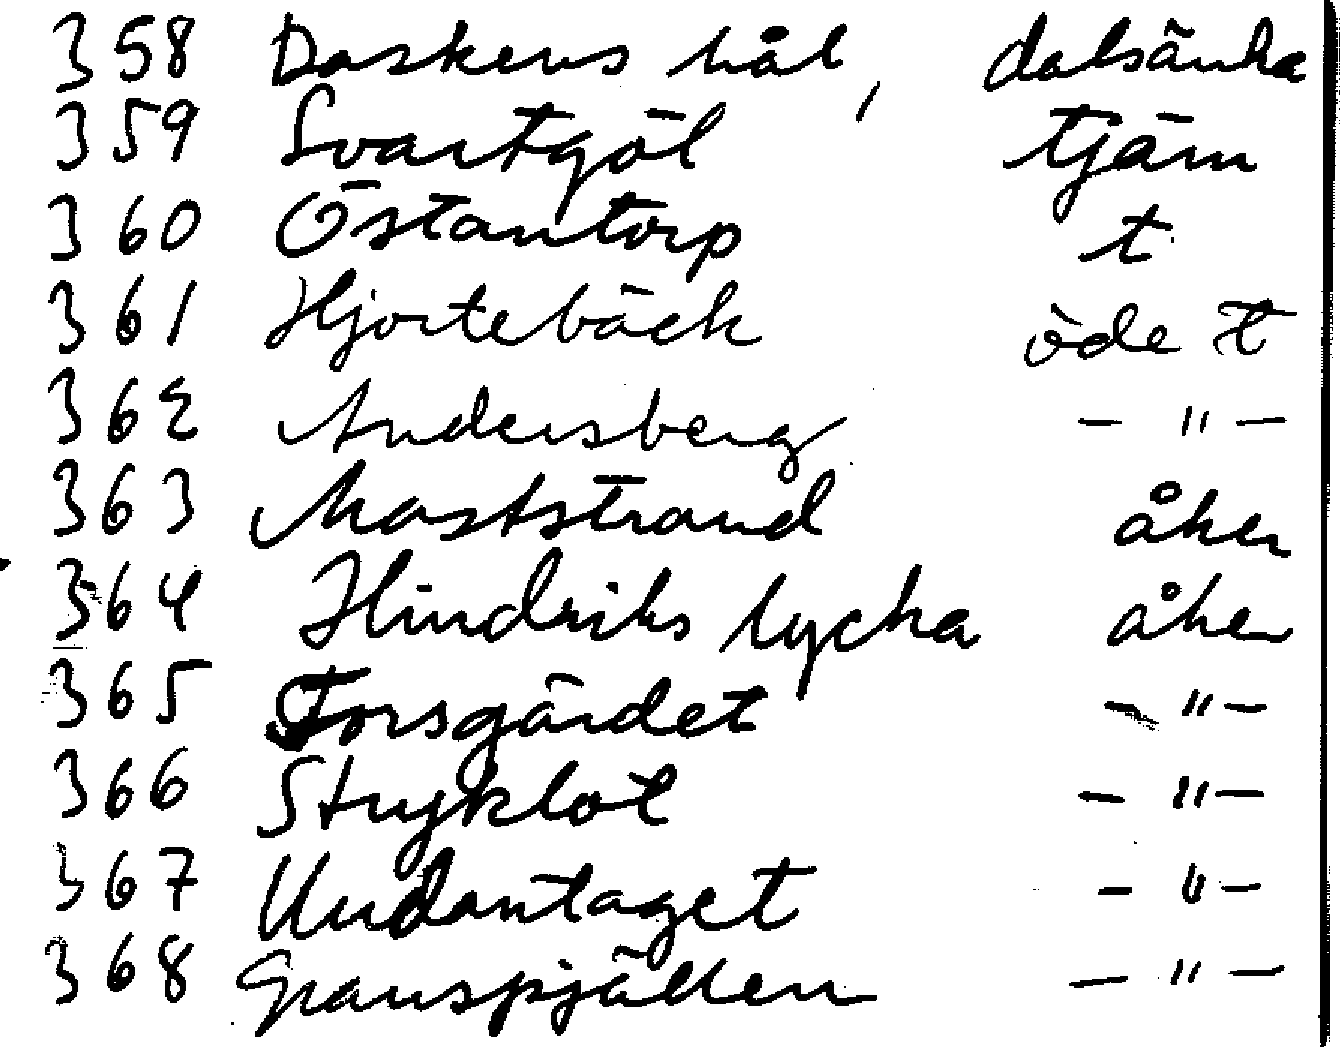 358 Daskens hål, dalsänka
359 Svartgöl tjärn
360 Östantorp t
361 Hjortebäck öde t
362 Andersberg - " -
363 Maststrand åker
364 Hindriks lycka åker
365 Torsgärdet - " -
366 Stryklot - " -
367 Undantaget - " -
368 Granspjällen - " -